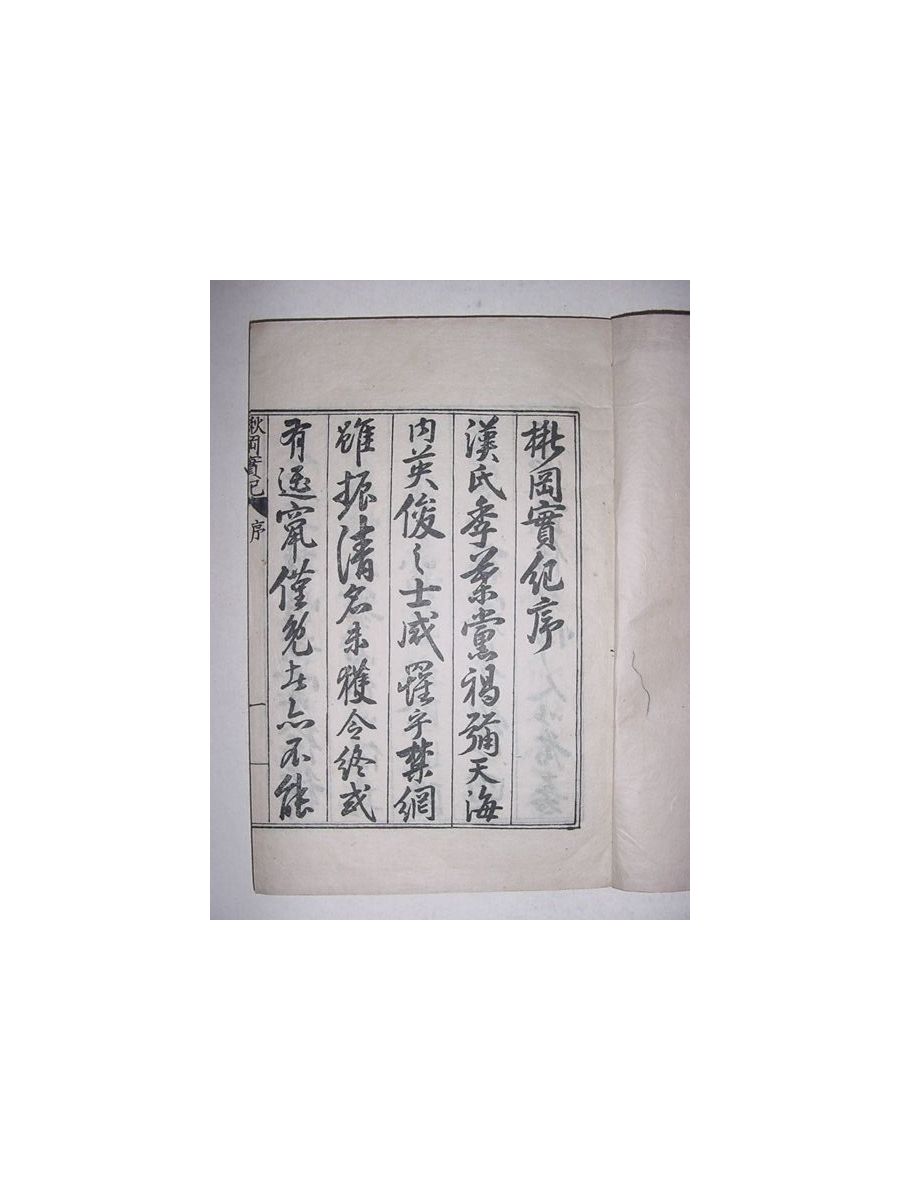 楸岡實紀序
漢氏季葉黨禍彌天海
內英俊之士咸罹乎禁網
雖振清名未獲令終或
有遯竄僅免者亦不能
楸岡實紀
序
一